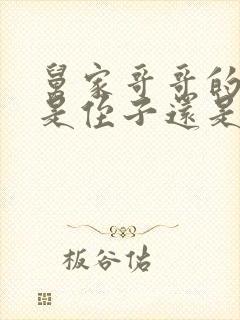 舅家哥哥的
是侄子還是
板谷佑